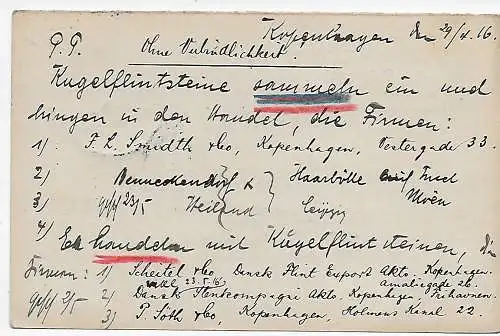 Kopenhagen den 29/4. 16.
P.P. Ohne Verbindlichkeit.
Kugelflintsteine sammeln ein und
bringen in den Handel, die Firmen:
1) F. L. Smidth & Co, Kopenhagen, Vestergade 33.
2) Haarbölle auf Insel Möen
3) 23/5 Weiland Leipzig
4) Es handeln mit Kugelflintsteinen, die
Firmen: 1) & Co, Dansk Flint Export Akts. Kopenhagen.
23.5.16. Amaliegade 26.
2/5 2) Dansk Stenkompagni Akts, Kopenhagen, Frihavnen.
3) P. Soth & Co, Kopenhagen, Holmens Kanal 22.